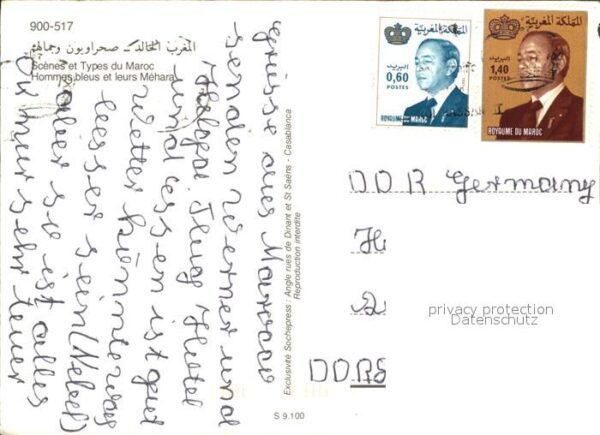 900-517
المغرب الخالد - صحراويون وجمالهم
Scènes et Types du Maroc
Hommes bleus et leurs Méhara
Grüsse aus Marocco
senden Werner und
Helga. Flug Hotel
und Essen ist gut
Wetter könnte was
besser sein (Nebel)
aber so ist alles
nur sehr teuer
Exclusivité Sochepress : Angle rues de Dinant et St Saëns - Casablanca
Reproduction interdite
S 9.100
المملكة المغربية
البريد
0,60
POSTES
ROYAUME DU MAROC
المملكة المغربية
البريد
1,40
POSTES
ROYAUME DU MAROC
DDR Germany
H
D
DDR
privacy protection
Datenschutz